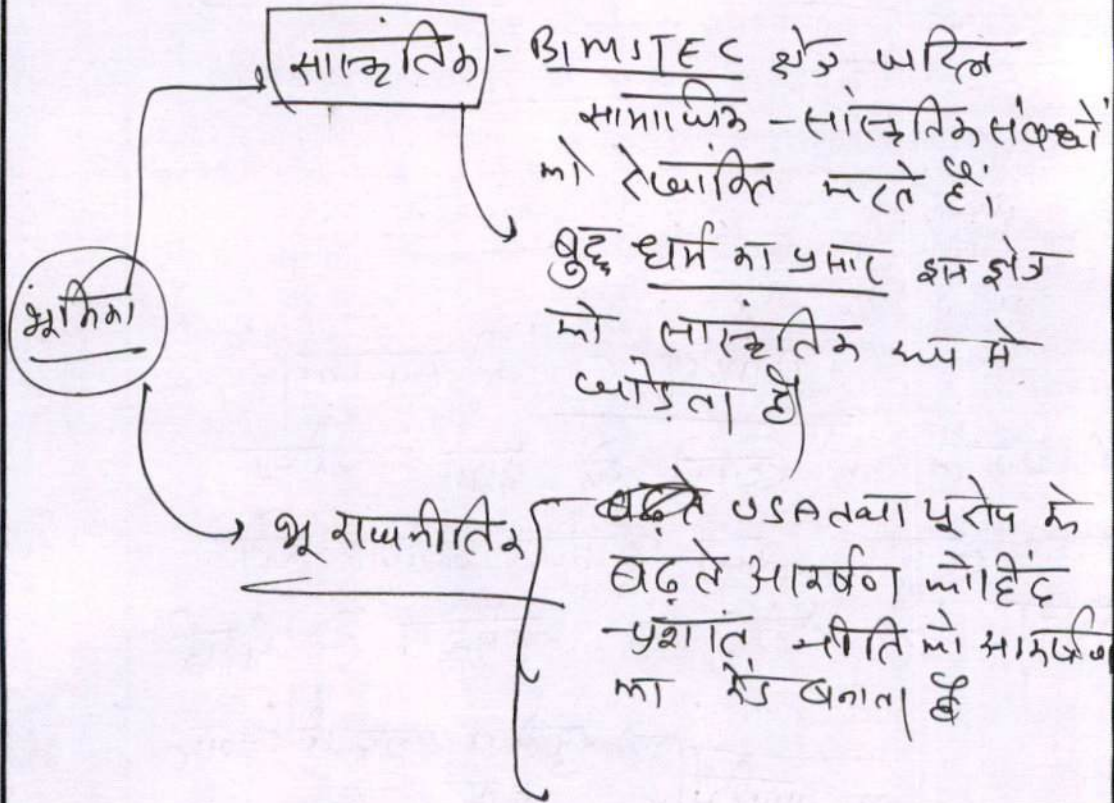 भूमिका
सांस्कृतिक - BIMSTEC क्षेत्र जटिल
सामाजिक - सांस्कृतिक संबंधों
को रेखांकित करते हैं।
बुद्ध धर्म का प्रसार इस क्षेत्र
को सांस्कृतिक रूप से
जोड़ता है
भू राजनीतिक
USA तथा यूरोप के
बढ़ते आकर्षण को हिंद
-प्रशांत नीति को आकर्षण
का केंद्र बनाता है